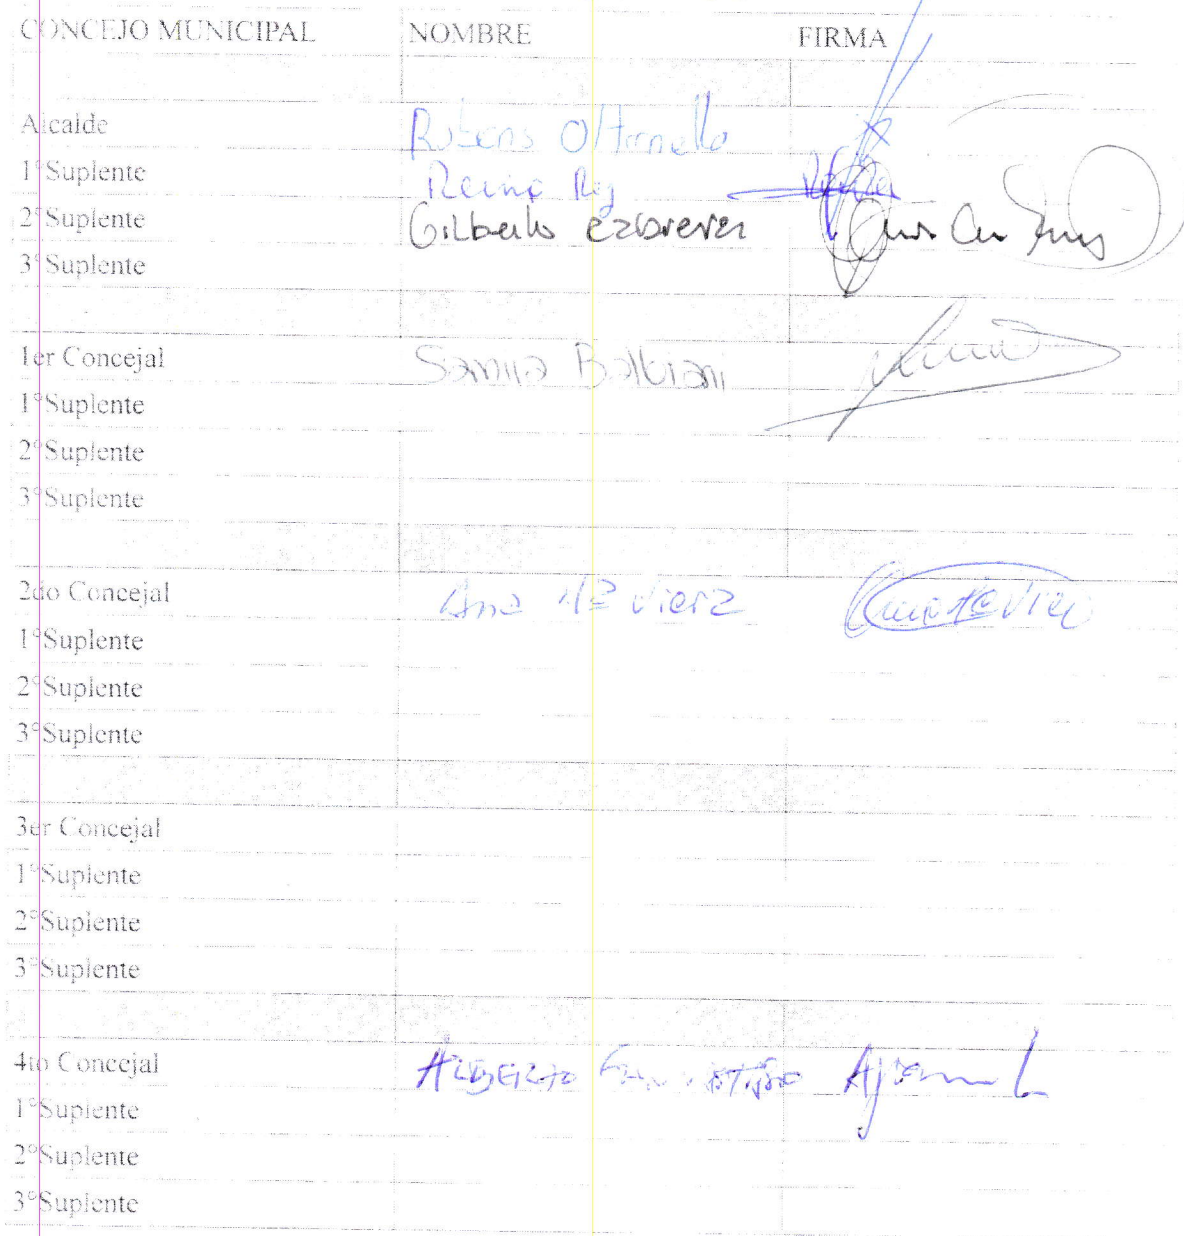 CONCEJO MUNICIPAL NOMBRE FIRMA
Alcalde Rubens Ottonello
1°Suplente Reina Rey
2°Suplente Gilberto
3°Suplente
1er Concejal Balbiani
1°Suplente
2°Suplente
3°Suplente
2do Concejal Ana Mª Viera
1°Suplente
2°Suplente
3°Suplente
3er Concejal
1°Suplente
2°Suplente
3°Suplente
4to Concejal ALBERTO
1°Suplente
2°Suplente
3°Suplente